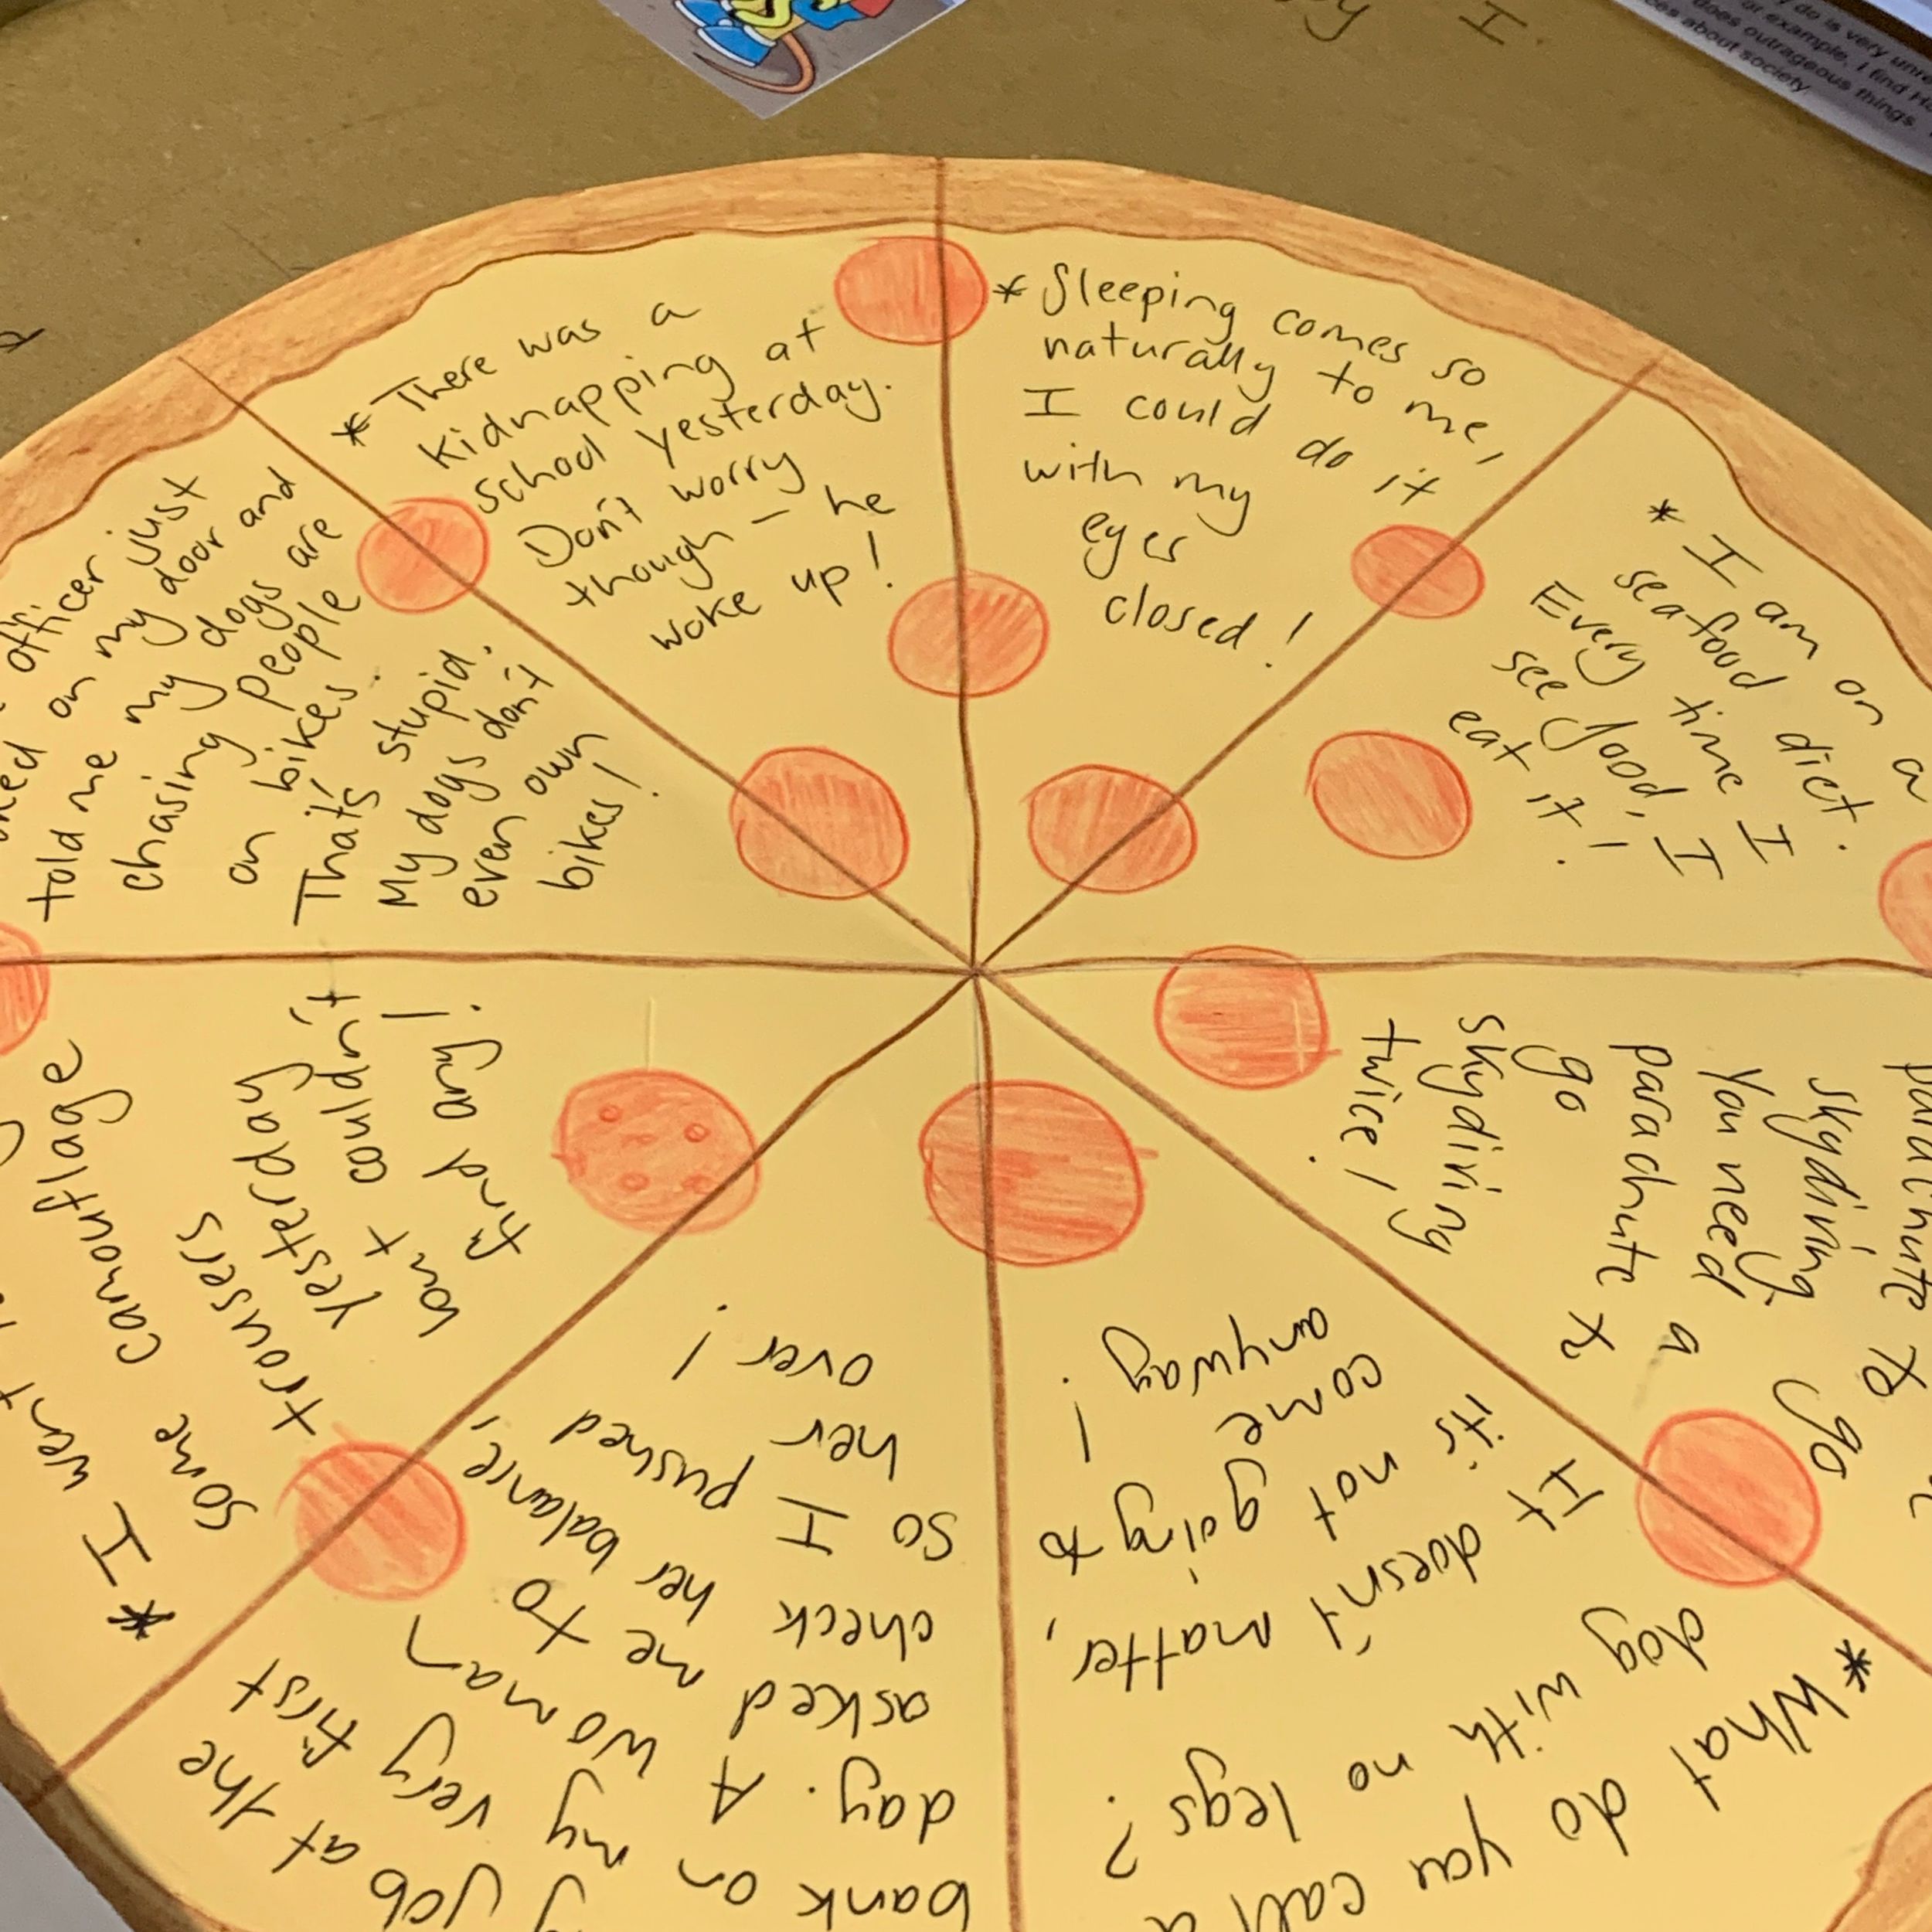 I.
do is very
or example, I find
does outrageous things
about society
* There was a
kidnapping at
school yesterday.
Don't worry
though – he
woke up!
* Sleeping comes so
naturally to me,
I could do it
with my
eyes
closed!
* I am on a
seafood diet.
Every time I
see food, I
eat it!
parachute to go
skydiving.
You need a
parachute to
go
skydiving
twice!
* What do you call a
dog with no legs?
It doesn't matter,
it's not going to
come
anyway!
job at the
bank on my very first
day. A woman
asked me to
check her balance,
so I pushed
her
over!
* I went
some camouflage
trousers
yesterday
but couldn't
find any!
officer just
on my door and
told me my dogs are
chasing people
on bikes.
That's stupid.
My dogs don't
even own
bikes!